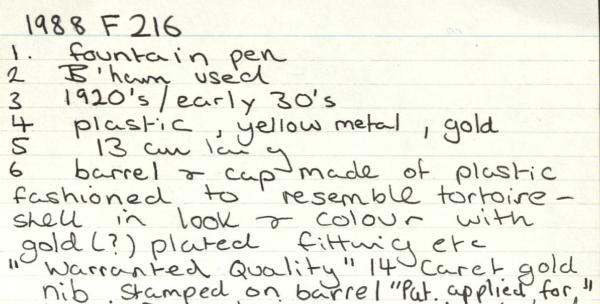 1988 F 216
1. fountain pen
2 B'ham used
3 1920's/early 30's
4 plastic, yellow metal, gold
5 13 cm long
6 barrel & cap made of plastic
fashioned to resemble tortoise-
shell in look & colour with
gold(?) plated fitting etc
"Warranted Quality" 14 Caret gold
nib stamped on barrel "Pat. applied for,"